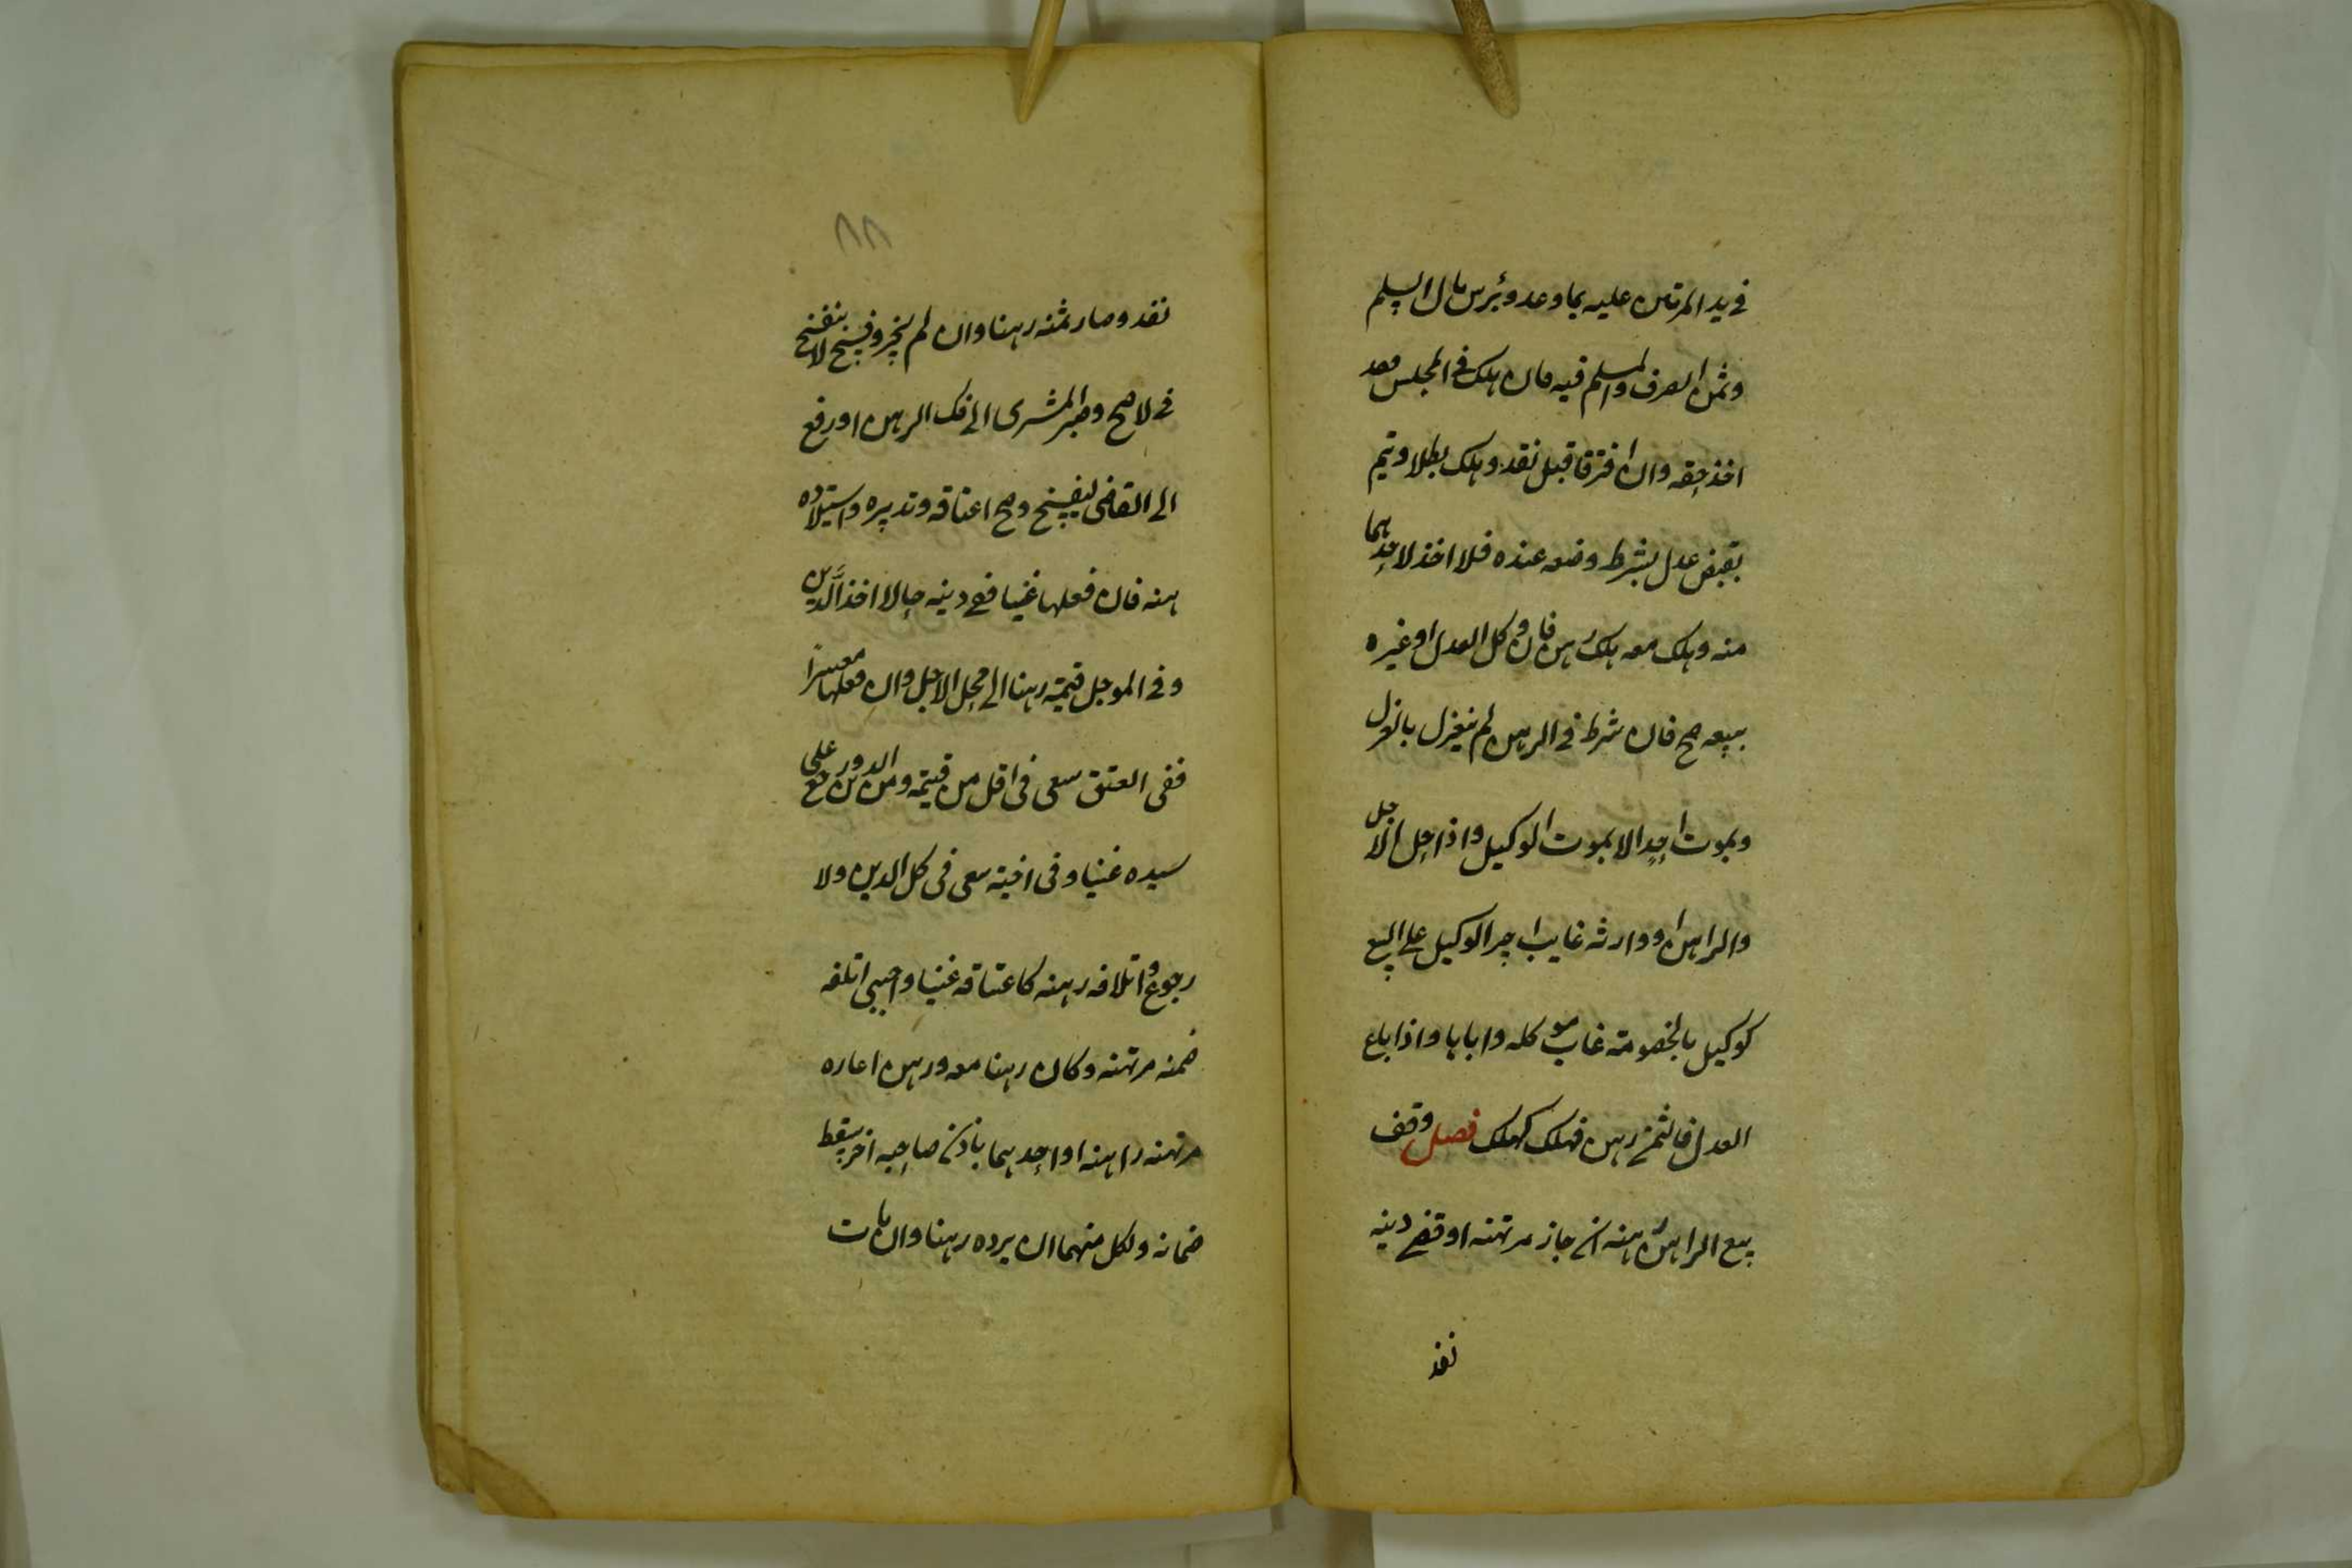 في يد المرتهن عليه بما وعد وبرٔس مال السلم
وثمن الصرف والمسلم فيه فان هلك في المجلس فقد
اخذ حقه وان افترقا قبل نقد وهلك بطلا ويتم
بقبض عدل بشرط وضعه عنده فلا اخذ لاحدهما
منه وهلك معه هلك رهن فان وكل العدل او غيره
ببيعه صح فان شرط في الرهن لم ينعزل بالعزل
وبموت احد الا بموت الوكيل واذا حل الاجل
والراهن او وارثه غايب اجبر الوكيل على البيع
كوكيل بالخصومة غاب موكله واباها واذا باع
العدل فالثمن رهن فهلك كهلك فصل وقف
بيع الراهن رهنه ان جاز مرتهنه او قضى دينه
نفذ
٨٨
نفذ وصار ثمنه رهنا وان لم يجز وفسخ لا ينفسخ
في لاصح وصبر المشترى الى فك الرهن او رفع
الى القاضى ليفسخ وصح اعتاقه وتدبيره واستيلاده
رهنه فان فعلها غنيا ففى دينه حالا اخذ الدين
وفي الموجل قيمته رهنا الى محل الاجل وان فعلها معسرا
ففى العتق سعى في اقل من قيمته ومن الدين ورجع على
سيده غنيا وفى اختيه سعى في كل الدين ولا
رجوع واتلافه رهنه كاعتاقه غنيا واجنبى اتلفه
ضمنه مرتهنه وكان رهنا معه ورهن اعاره
مرتهنه راهنه او احدهما باذن صاحبه اخر يسقط
ضمانه ولكل منهما ان يرده رهنا وان مات